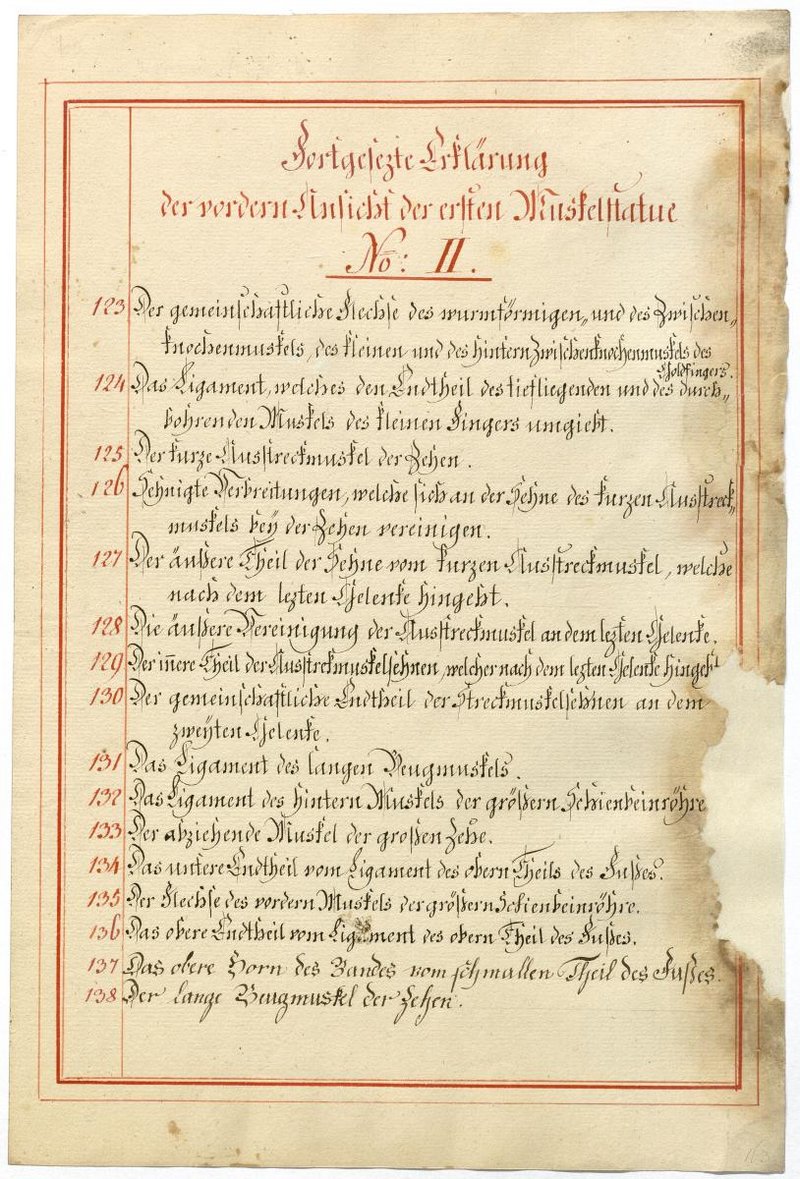 Fortgesezte Erklärung
der vordern Ansicht der ersten Muskelstatue
No: II.
123 Der gemeinschaftliche Flechse des wurmförmigen„ und des Zwischen„
knochenmuskels, des kleinen und des hintern Zwischenknochenmuskels des
Goldfingers.
124 Das Ligament, welches den Endtheil des tiefliegenden und des durch„
bohrenden Muskels des kleinen Fingers umgiebt.
125 Der kurze Ausstreckmuskel der Zehen.
126 Sehnigte Verbreitungen, welche sich an der Sehne des kurzen Ausstreck„
muskels bey der Zehen vereinigen.
127 Der äußere Theil der Sehne vom kurzen Ausstreckmuskel, welche
nach dem lezten Gelenke hingeht.
128 Die äußere Vereinigung der Ausstreckmuskel an dem lezten Gelenke.
129 Der innere Theil der Ausstreckmuskelsehnen, welcher nach dem lezten Gelenke hingeht
130 Der gemeinschaftliche Endtheil der Streckmuskelsehnen an dem
zweyten Gelenke.
131 Das Ligament des langen Beugmuskels.
132 Das Ligament des hintern Muskels der größern Schienbeinröhre
133 Der abziehende Muskel der großen Zehe.
134 Das untere Endtheil vom Ligament des obern Theils des Fußes.
135 Der Flechse des vordern Muskels der größern Schienbeinröhre.
136 Das obere Endtheil vom Ligament des obern Theil des Fußes.
137 Das obere Horn des Bandes vom schmallen Theil des Fußes.
138 Der lange Beugmuskel der Zehen.